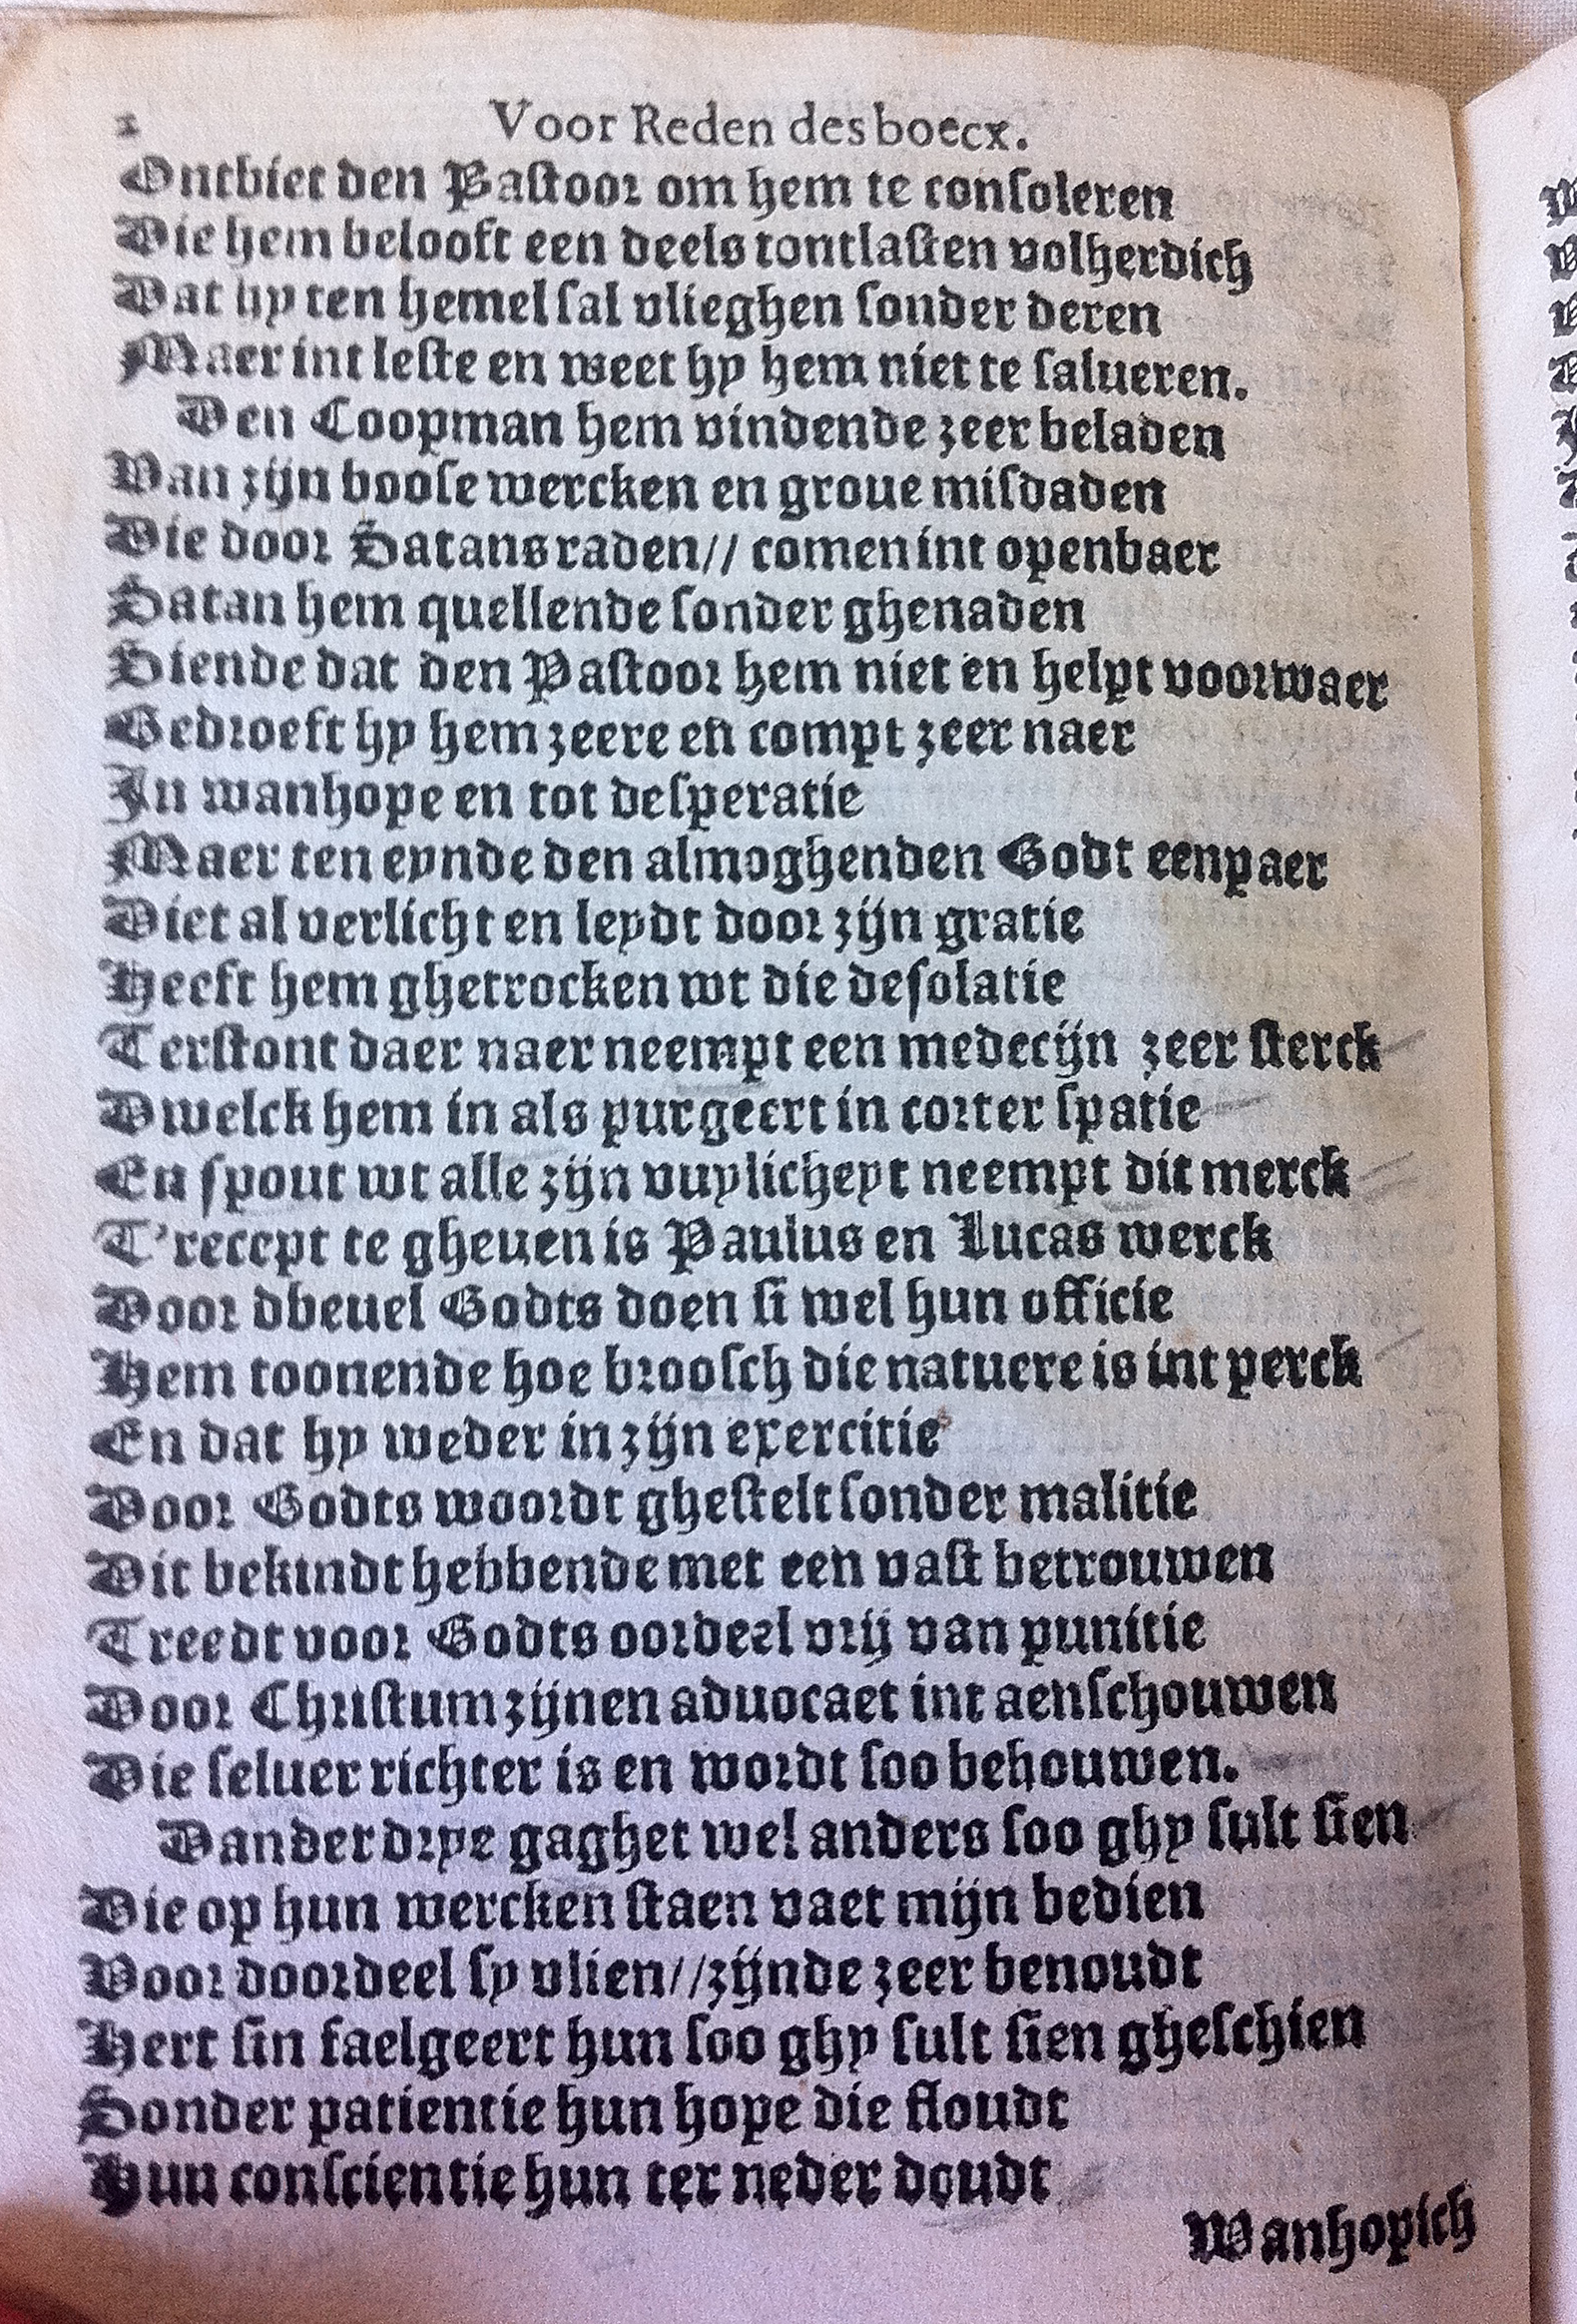 2 Voor Reden des boecx.
Ontbiet den Pastoor om hem te consoleren
Die hem belooft een deels tontlasten volherdich
Dat hy ten hemel sal vlieghen sonder deren
Maer int leste en weet hy hem niet te salueren.
Den Coopman hem vindende zeer beladen
Van zijn boose wercken en groue misdaden
Die door Satans raden// comen int openbaer
Satan hem quellende sonder ghenaden
Siende dat den Pastoor hem niet en helpt voorwaer
Gedroeft hy hem zeere eñ compt zeer naer
In wanhope en tot desperatie
Maer ten eynde den almoghenden Godt eenpaer
Diet al verlicht en leydt door zijn gratie
Heeft hem ghetrocken wt die desolatie
Terstont daer naer neempt een medecijn zeer sterck
Dwelck hem in als purgeert in corter spatie
En spout wt alle zijn vuylicheyt neempt dit merck
T'recept te gheuen is Paulus en Lucas werck
Door dbeuel Godts doen si wel hun officie
Hem toonende hoe broosch die natuere is int perck
En dat hy weder in zijn exercitie
Door Godts woordt ghestelt sonder malitie
Dit bekindt hebbende met een vast betrouwen
Treedt voor Godts oordeel vrij van punitie
Door Christum zijnen aduocaet int aenschouwen
Die seluer richter is en wordt soo behouwen.
Dander drye gaghet wel anders soo ghy sult sien
Die op hun wercken staen vaet mijn bedien
Voor doordeel sy vlien//zijnde zeer benoudt
Hert sin faelgeert hun soo ghy sult sien gheschien
Sonder patientie hun hope die floudt
Hun conscientie hun ter neder doudt
Wanhopich